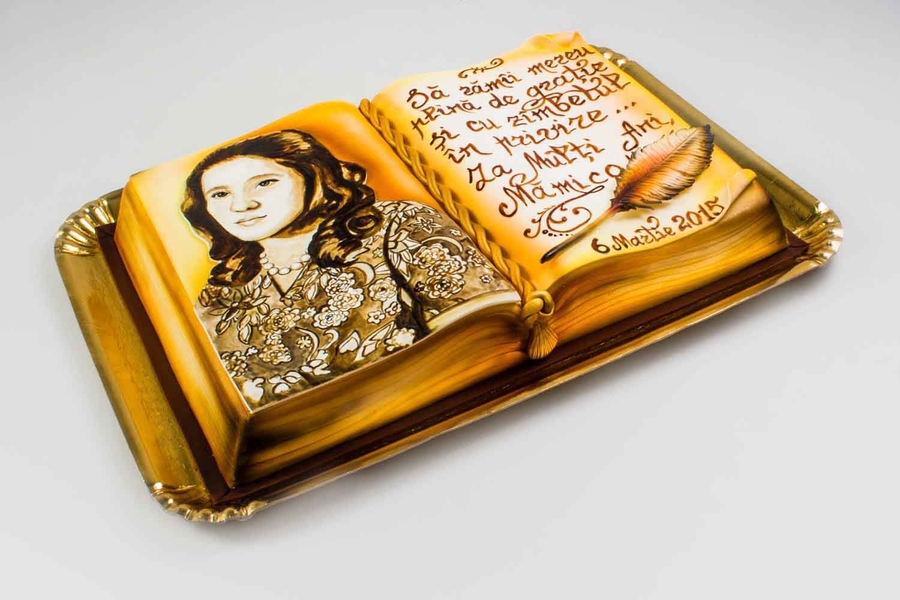 Să rămîi mereu
plină de grație
și cu zîmbetul
în privire ...
La Mulți Ani,
Mămico
6 Martie 2015